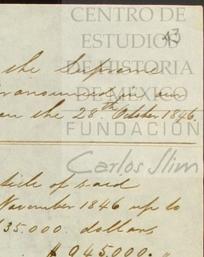 CENTRO DE
ESTUDIOS
DE HISTORIA
DE MÉXICO
FUNDACIÓN
Carlos Slim
43
the Supreme
on the 28th October 1846
of said
November 1846 up to
$35.000. dollars
$945.000.